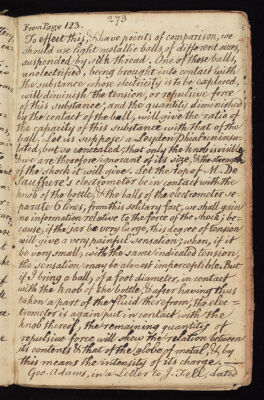 273
From Page 123.
To effect this, & have points of comparison, we
should use light metallic balls, of different sizes,
suspended by silk thread. One of those balls,
unelectrified, being brought into contact with
the substance whose electricity is to be explored,
will diminish the tension, or repulsive force
of this substance; and the quantity diminished
by the contact of the ball, will give the ratio of
the capacity of this substance with that of the
ball. Let us suppose a Leyden Phial uninsu-
lated, but so concealed, that only the knob is visible,
& we are therefore ignorant of its size, & the strength
of the shock it will give. Let the top of M. De
Saussure's electrometer be in contact with the
knob of the bottle, & the balls of the electrometer se-
parate 6 lines, from this solitary fact, we shall gain
no information relative to the force of the shock; be-
cause, if the jar be very large, this degree of tension
will give a very painful sensation; when, if it
be very small, with the same indicated tension,
the sensation may be almost imperceptible. But
if I bring a ball, of a foot diameter, in contact
with the knob of the bottle, & after having thus
taken a part of the fluid therefrom, the elec-
trometer is again put in contact with the
knob thereof, the remaining quantity of
repulsive force will shew the relation between
its contents & that of the globe of metal, & by
this means the intensity of its charge.
Geo: Adams, in a Letter to J. Fell, dated